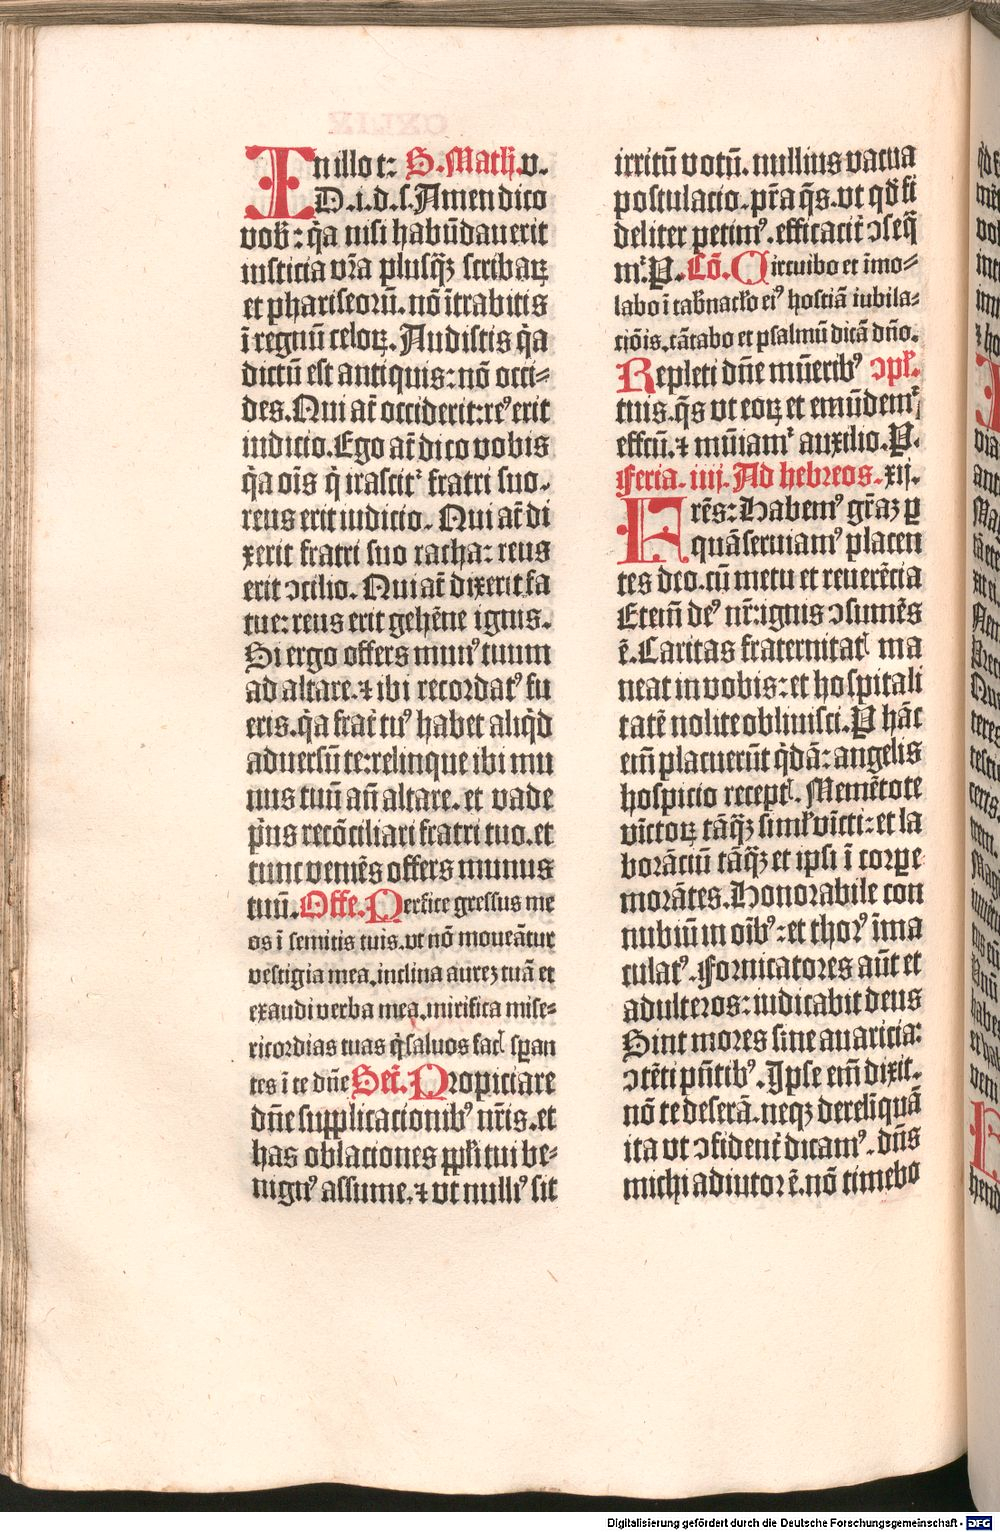 In illo t: S. Math. v.
D.i.d.s. Amen dico
vob̄: q̄a nisi habūdauerit
iusticia vr̄a plusq̄ꝫ scribaꝝ
et phariseorū. nō ītrabitis
ī regnū celoꝝ. Audistis q̄a
dictū est antiquis: nō occi-
des. Qui at̄ occiderit: reꝰ erit
iudicio. Ego at̄ dico vobis
q̄a oīs q̄ irascit᷑ fratri suo.
reus erit iudicio. Qui at̄ di
xerit fratri suo racha: reus
erit ↄcilio. Qui at̄ dixerit fa
tue: reus erit gehēne ignis.
Si ergo offers munꝰ tuum
ad altare. ⁊ ibi recordatꝰ fu
eris. q̄a frat̄ tuꝰ habet aliq̄d
aduersū te: relinque ibi mu
nus tuū an̄ altare. et vade
p̄us recōciliari fratri tuo. et
tunc veniēs offers munus
tuū. Offe. Perfice gressus me
os ī semitis tuis. vt nō moueātur
vestigia mea. inclina aureꝫ tuā et
exaudi verba mea. mirifica mise-
ricordias tuas q̄ saluos facꝭ sꝑan
tes ī te dn̄e Secr̄. Propiciare
dn̄e supplicacionibꝰ nr̄is. et
has oblaciones ppl̄i tui be-
nignꝰ assume. ⁊ vt nulliꝰ sit
irritū votū. nullius vacua
postulacio. pr̄a q̄s. vt qd̄ fi
deliter petimꝰ. efficacit̄ ↄseq̄
mr̄. P. Cō. Circuibo et īmo-
labo ī tab̄nac̄lo eiꝰ hostiā iubila-
ciōis. cātabo et psalmū dicā dn̄o.
Repleti dn̄e mūeribꝰ ↄpl̄.
tuis. q̄s vt eoꝝ et emūdem᷑
effcū. ⁊ mūiam᷑ auxilio. P.
Feria. iiij. Ad hebreos. xij.
Frēs: Habemꝰ gr̄aꝫ ꝑ
quā seruiamꝰ placen
tes deo. cū metu et reuerēcia
Eteīm deꝰ nr̄: ignis ↄsumēs
ē. Caritas fraternitatꝭ ma
neat in vobis: et hospitali
tatē nolite obliuisci. P hāc
em̄ placuerūt q̄dā: angelis
hospicio receptꝭ. Memētote
vīctoꝝ tāq̄ꝫ siml̄ vīcti: et la
borāciū tāq̄ꝫ et ipsi ī corpe
morātes. Honorabile con
nubiū in oībꝰ: et thorꝰ īma
culatꝰ. Fornicatores aūt et
adulteros: iudicabit deus
Sint mores sine auaricia:
ↄtēti pn̄tibꝰ. Ipse em̄ dixit.
nō te deserā. neqꝫ derelīquā
ita vt ↄfident̄ dicamꝰ. dn̄s
michi adiutor ē. nō timebo
Digitalisierung gefördert durch die Deutsche Forschungsgemeinschaft - DFG